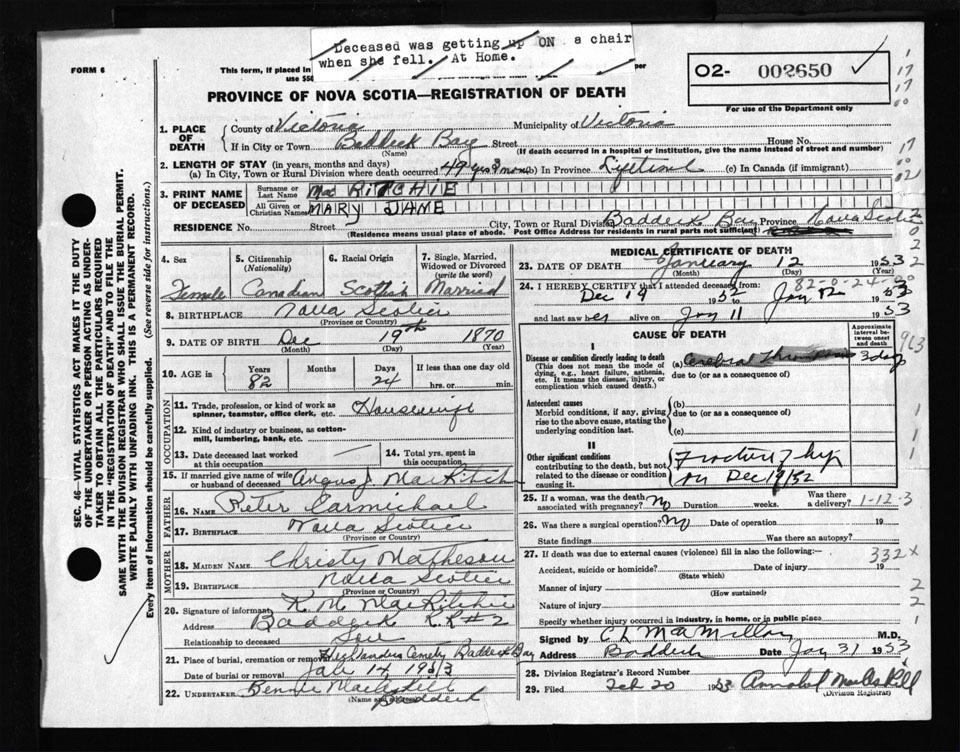 Deceased was getting up ON a chair
when she fell. At Home.
FORM 6
This form, if placed in
per
use $50
O2- 002650
PROVINCE OF NOVA SCOTIA—REGISTRATION OF DEATH
For use of the Department only
1. PLACE OF DEATH
County of Victoria Municipality of Victoria
If in City or Town Baddeck Bay Street House No.
(Name) (If death occurred in a hospital or institution, give the name instead of street and number)
2. LENGTH OF STAY (in years, months and days)
(a) In City, Town or Rural Division where death occurred 49 yrs (b) In Province Lifetime (c) In Canada (if immigrant)
3. PRINT NAME OF DECEASED
Surname or Last Name Mac RITCHIE
All Given or Christian Names MARY JANE
RESIDENCE No. Street City, Town or Rural Division Baddeck Bay Province Nova Scotia
(Residence means usual place of abode. Post Office Address for residents in rural parts not sufficient)
4. Sex Female
5. Citizenship (Nationality) Canadian
6. Racial Origin Scottish
7. Single, Married, Widowed or Divorced (write the word) Married
8. BIRTHPLACE Nova Scotia
(Province or Country)
9. DATE OF BIRTH Dec 19th 1870
(Month) (Day) (Year)
10. AGE in Years 82 Months Days 24 If less than one day old
hrs. or min.
OCCUPATION
11. Trade, profession, or kind of work as spinner, teamster, office clerk, etc. Housewife
12. Kind of industry or business, as cotton-mill, lumbering, bank, etc.
13. Date deceased last worked at this occupation
14. Total yrs. spent in this occupation
15. If married give name of wife or husband of deceased Angus J MacRitchie
FATHER
16. NAME Peter Carmichael
17. BIRTHPLACE Nova Scotia
(Province or Country)
MOTHER
18. MAIDEN NAME Christy Matheson
19. BIRTHPLACE Nova Scotia
(Province or Country)
20. Signature of informant K. M. MacRitchie
Address Baddeck R.R#2
Relationship to deceased
21. Place of burial, cremation or removal Cemetry Baddeck Bay
Date of burial or removal Jan 14 1953
22. UNDERTAKER
(Name and
Baddeck
MEDICAL CERTIFICATE OF DEATH
23. DATE OF DEATH January 12 1953
(Month) (Day) (Year)
24. I HEREBY CERTIFY that I attended deceased from:
Dec 19 1952 to Jan 12 1953
82-0-24
and last saw her alive on Jan 11 1953
CAUSE OF DEATH
Approximate interval between onset and death
I
Disease or condition directly leading to death
(This does not mean the mode of dying, e.g., heart failure, asthenia, etc. It means the disease, injury, or complication which caused death.)
(a) Cerebral Thrombosis 3 days
due to (or as a consequence of)
Antecedent causes
Morbid conditions, if any, giving rise to the above cause, stating the underlying condition last.
(b)
due to (or as a consequence of)
(c)
II
Other significant conditions
contributing to the death, but not related to the disease or condition causing it.
Fracture of hip
on Dec 19/52
25. If a woman, was the death associated with pregnancy? No Duration weeks. Was there a delivery?
1-12-3
26. Was there a surgical operation? No Date of operation 19
State findings Was there an autopsy?
27. If death was due to external causes (violence) fill in also the following:—
332x
Accident, suicide or homicide? Date of injury 19
(State which)
Manner of injury
(How sustained)
Nature of injury
Specify whether injury occurred in industry, in home, or in public place
Signed by C L MacMillan M.D.
Address Baddeck Date Jan 31 1953
28. Division Registrar's Record Number
29. Filed Feb 20 1953 Annabel MacAskill
(Division Registrar)
SEC. 46—VITAL STATISTICS ACT MAKES IT THE DUTY
OF THE UNDERTAKER OR PERSON ACTING AS UNDER-
TAKER TO OBTAIN ALL THE PARTICULARS REQUIRED
IN THE "REGISTRATION OF DEATH" AND TO FILE THE
SAME WITH THE DIVISION REGISTRAR WHO SHALL ISSUE THE BURIAL PERMIT.
WRITE PLAINLY WITH UNFADING INK. THIS IS A PERMANENT RECORD.
Every item of information should be carefully supplied. (See reverse side for instructions.)